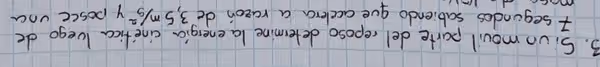 3. Si un movil parte del reposo determine la energía cinética luego de
7 segundos sabiendo que acelera a razón de 3,5 m/s² y posee una